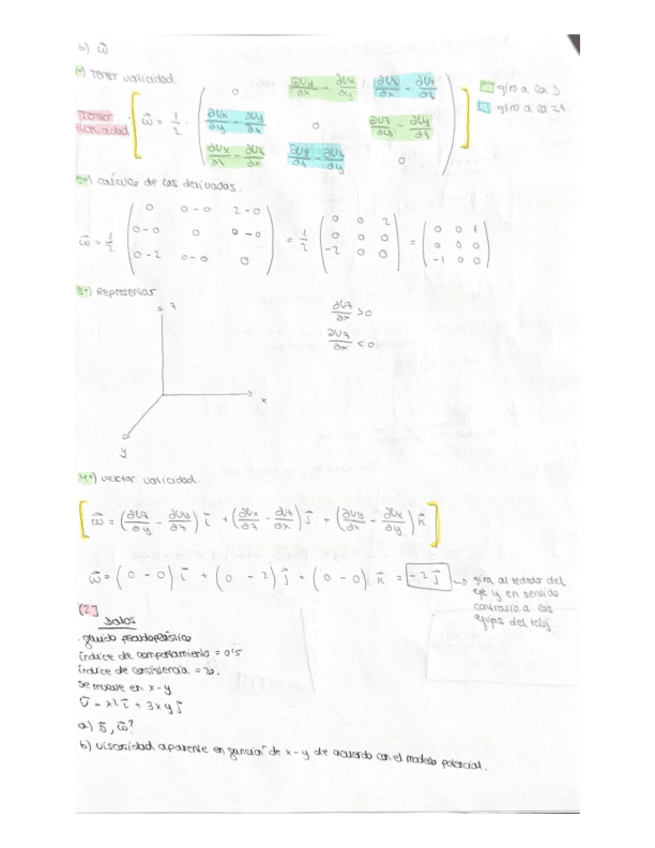 b) ω⃗
1º) Tensor vorticidad
Tensor vorticidad
ω⃗ = 1/2 · ( 0   ∂Uy/∂x - ∂Ux/∂y   ∂Uz/∂x - ∂Ux/∂z
∂Ux/∂y - ∂Uy/∂x   0   ∂Uz/∂y - ∂Uy/∂z
∂Ux/∂z - ∂Uz/∂x   ∂Uy/∂z - ∂Uz/∂y   0 )
giro a la D
giro a la IZ.
2º) cálculo de las derivadas.
ω⃗ = 1/2 ( 0   0-0   2-0
0-0   0   0-0
0-2   0-0   0 ) = 1/2 · ( 0 0 2
0 0 0
-2 0 0 ) = ( 0 0 1
0 0 0
-1 0 0 )
3º) Representar
z
x
y
∂Uz/∂x > 0
∂Uz/∂x < 0
4º) vector vorticidad.
ω⃗ = (∂Uz/∂y - ∂Uy/∂z) i⃗ + (∂Ux/∂z - ∂Uz/∂x) j⃗ + (∂Uy/∂x - ∂Ux/∂y) k⃗
ω⃗ = (0 - 0) i⃗ + (0 - 2) j⃗ + (0 - 0) k⃗ = -2 j⃗ → gira al rededor del
eje y en sentido
contrario a las
agujas del reloj
[2]
Datos
. fluido pseudoplástico
índice de comportamiento = 0'5
índice de consistencia = 20.
se mueve en x-y
U⃗ = x² i⃗ + 3xy j⃗
a) , ω⃗?
b) viscosidad aparente en función de x-y de acuerdo con el modelo potencial.